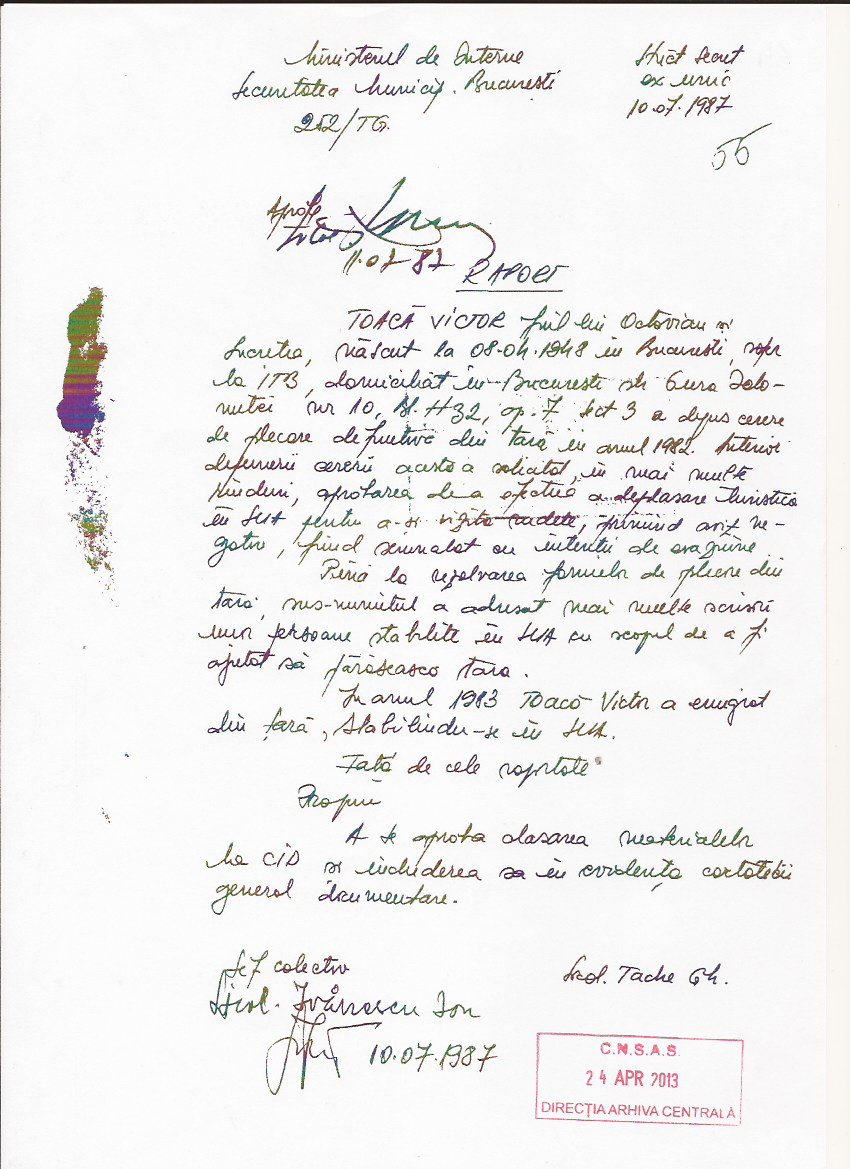 Ministerul de Interne
Securitatea Municip. București
252/TG.
Strict secret
ex unic
10.07.1987
55
Aprob
11.07.87
RAPORT
TOACĂ VICTOR fiul lui Octavian și
Lucreția, născut la 08.04.1948 în București,
la ITB, domiciliat în București str Gura Ialo-
mitei nr 10, bl. H32, ap. 7 sect 3 a depus cerere
de plecare definitivă din țară în anul 1982. Anterior
depunerii cererii acesta a solicitat, în mai multe
rînduri, aprobarea de a efectua o deplasare turistică
în SUA pentru a-și vizita rudele, primind aviz ne-
gativ, fiind semnalat cu intenții de evaziune
Pînă la rezolvarea formelor de plecare din
țară, sus-numitul a adresat mai multe scrisori
unor persoane stabilite în SUA cu scopul de a fi
ajutat să părăsească țara.
In anul 1983 Toacă Victor a emigrat
din țară, stabilindu-se în SUA.
Față de cele raportate
Propun
A se aproba clasarea materialelor
la CID și includerea sa în evidența cartotecii
general documentare.
Șef colectiv
Ivănescu Ion
10.07.1987
Tache Gh.
C.N.S.A.S.
24 APR 2013
DIRECȚIA ARHIVA CENTRALĂ